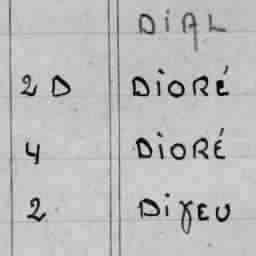 DIAL
2 D DIORÉ
4 DIORÉ
2 DIYEU